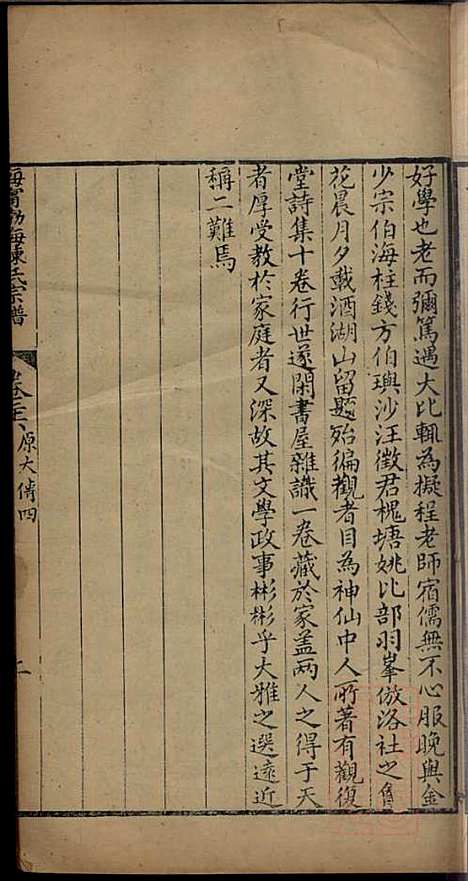 好學也老而彌篤遇大比輒為擬程老師宿儒無不心服晚與金
少宗伯海柱錢方伯璵沙汪徵君槐塘姚比部羽峯倣洛社之會
花晨月夕載酒湖山留題殆徧觀者目為神仙中人所著有觀復
堂詩集十卷行世遂閑書屋雜識一卷藏於家盖兩人之得于天
者厚受教於家庭者又深故其文學政事彬彬乎大雅之選遠近
稱二難焉
海寧渤海陳氏宗譜
卷二 原大傳四
二